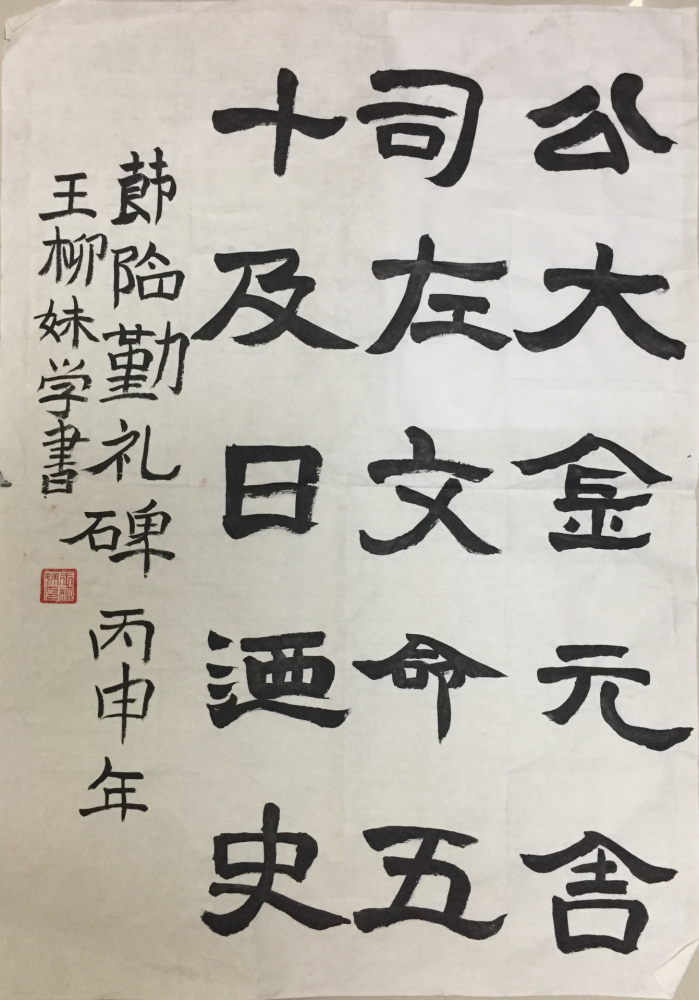 公大金元舍
司左文命五
十及日迺史
節临勤礼碑 丙申年
王柳妹学書